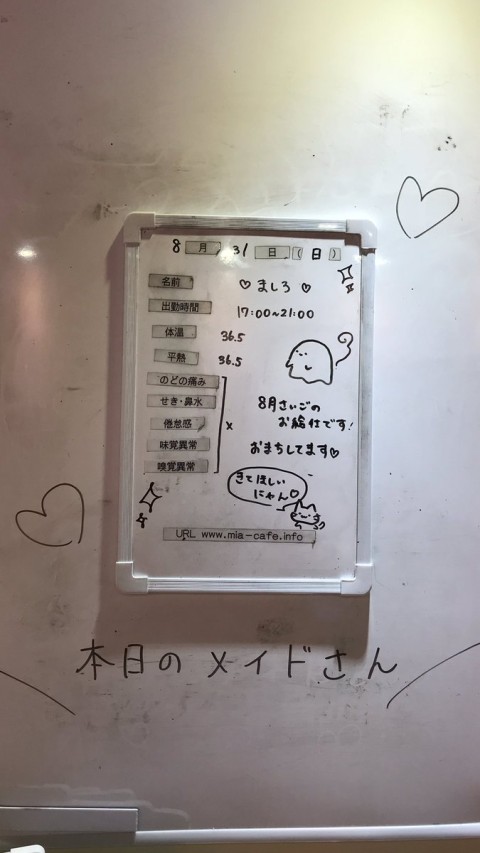 8月31日(日)
名前 ♡ましろ♡
出勤時間 17:00~21:00
体温 36.5
平熱 36.5
のどの痛み
せき・鼻水
倦怠感 ×
味覚異常
嗅覚異常
8月さいごの
お給仕です!
おまちしてます♡
きてほしい
にゃん♡
URL www.mia-cafe.info
本日のメイドさん